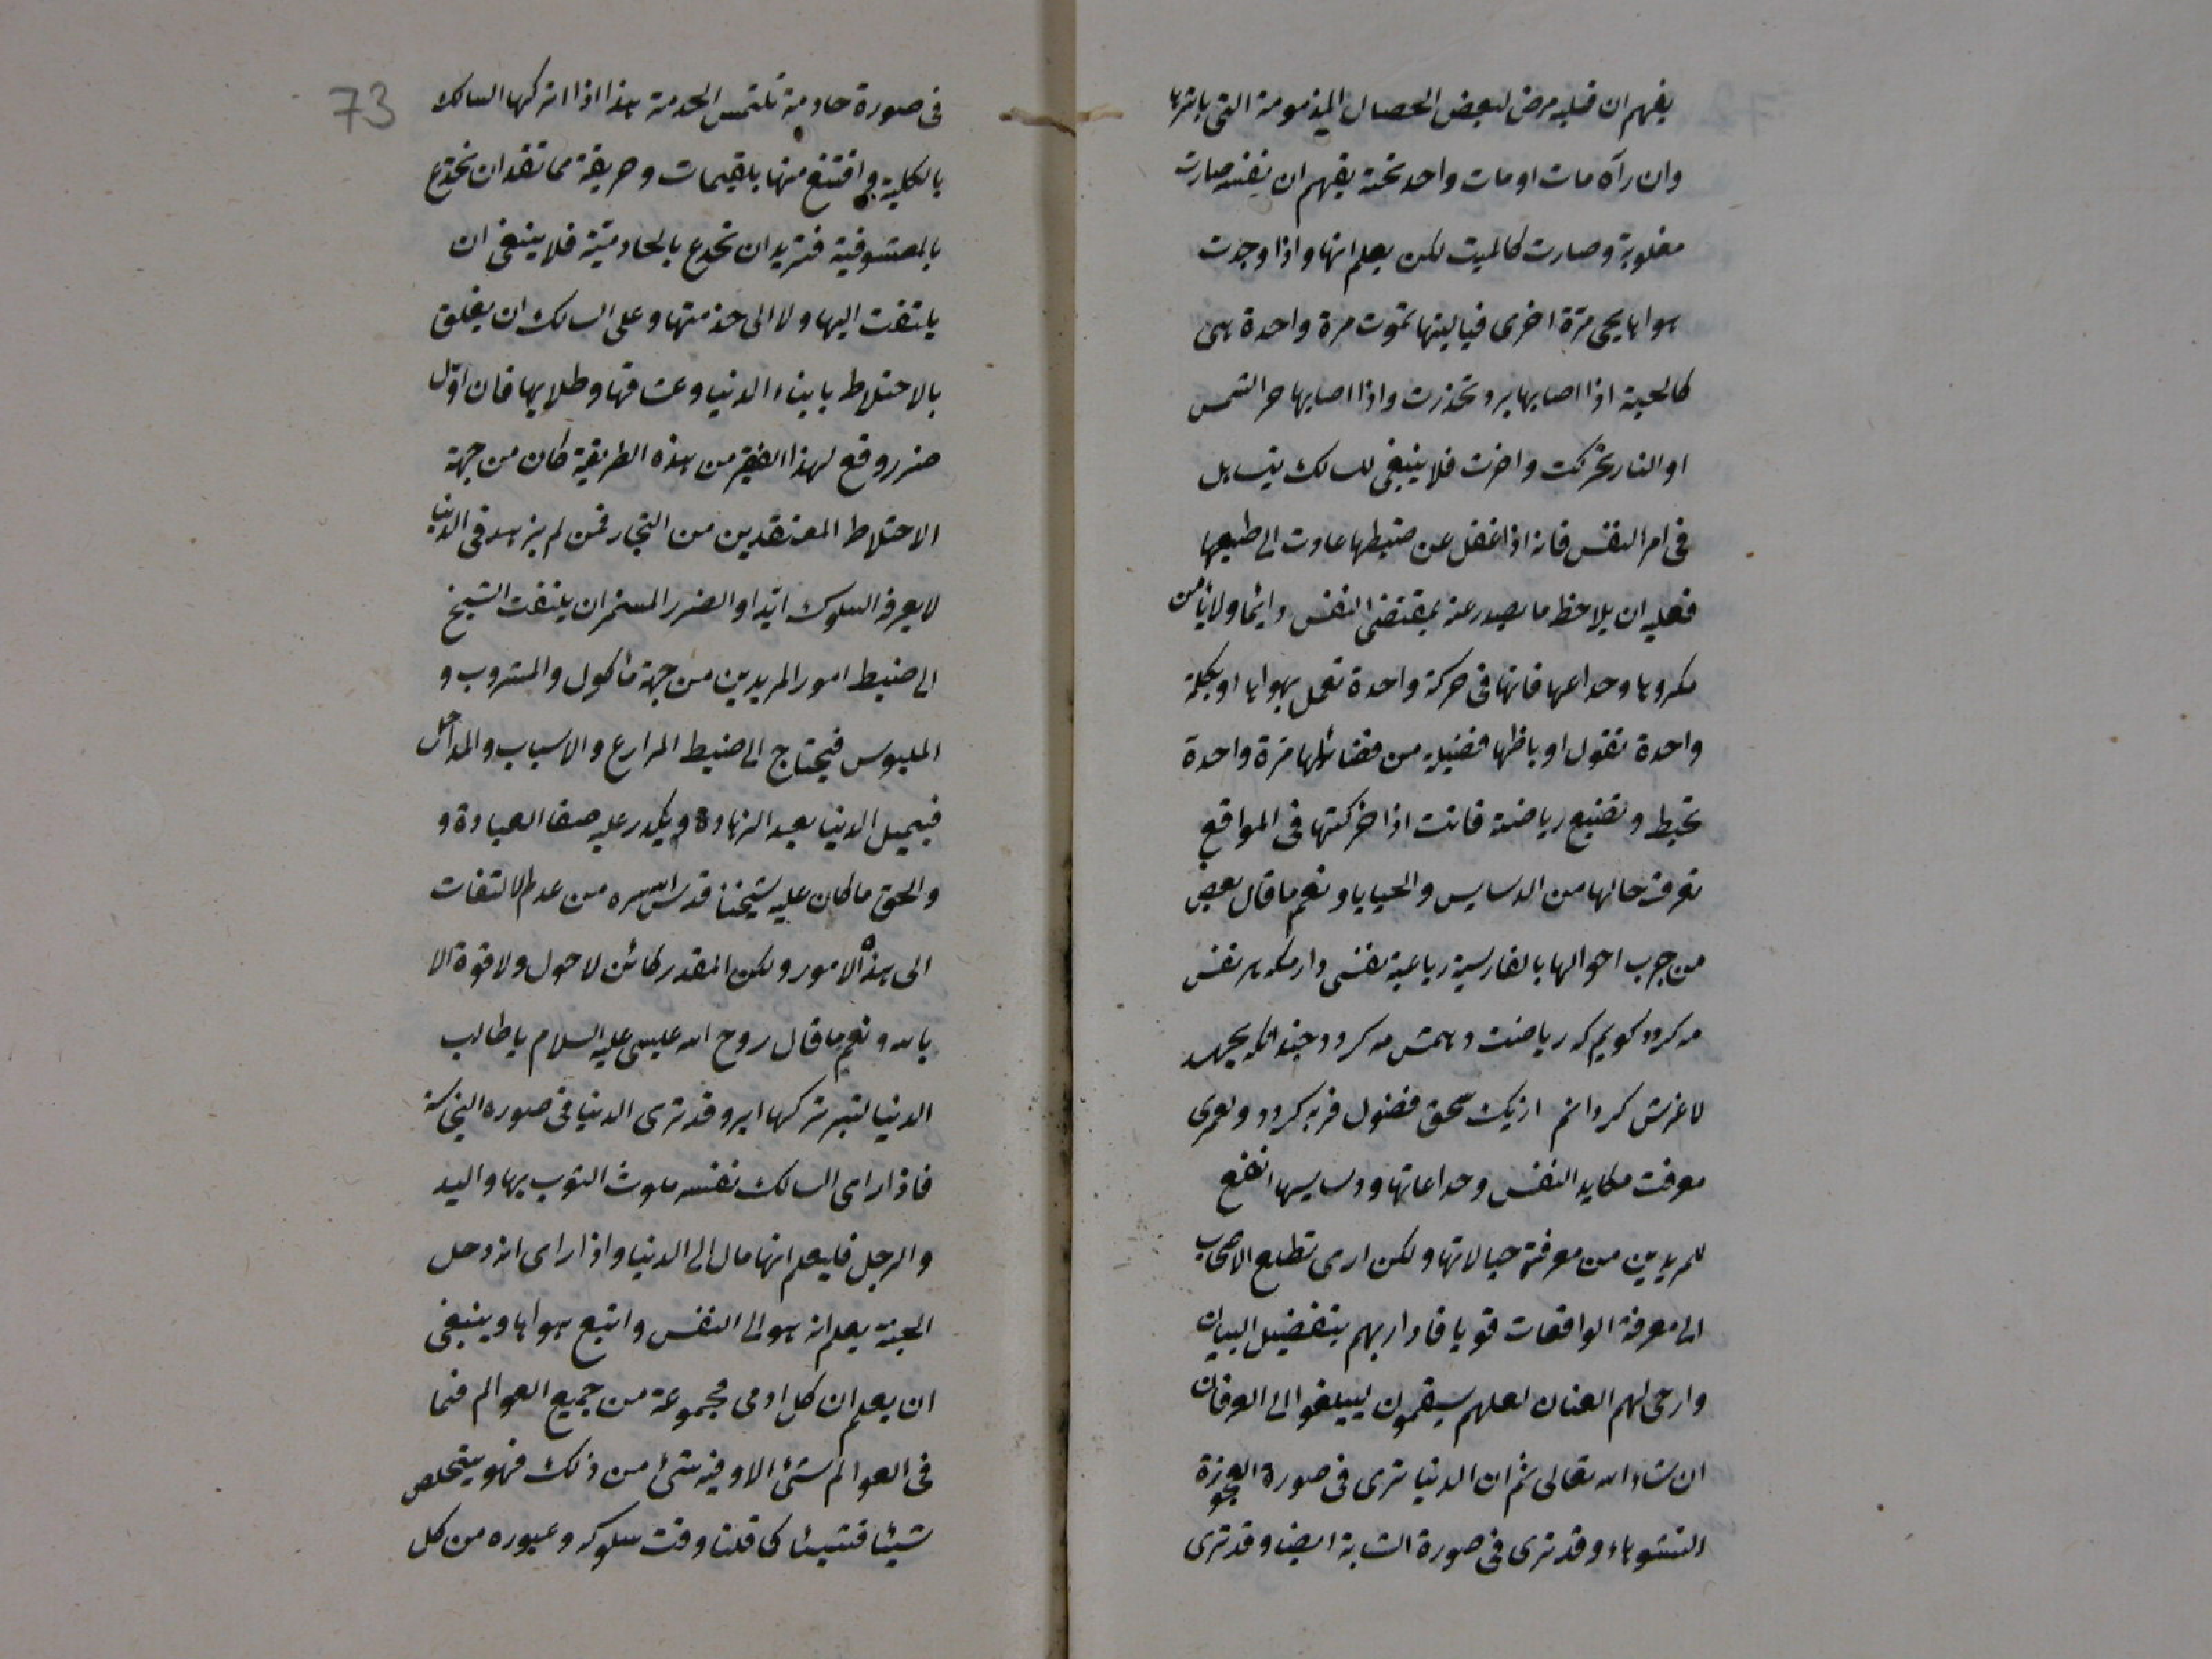 يفهم ان قلبه مرض لبعض الخصال المذمومة التى باشرها
وان رآه مات او مات واحد تحته يفهم ان نفسه صارت
مغلوبة وصارت كالميت لكن يعلم انها واذا وجدت
هواها يحى مرّة اخرى فياليتها تموت مرة واحدة هى
كالحية اذا اصابها برد تخذرت واذا اصابها حر الشمس
او النار تحركت واضرت فلا ينبغى للسالك يتساهل
فى امر النفس فانه اذا غفل عن ضبطها عادت الى طبعها
فعليه ان يلاحظ ما يصدر عنه بمقتضى النفس دائما ولا يأمن
مكروها وخداعها فانها فى حركة واحدة تعمل بهواها او بكلمة
واحدة تقول او باظها فضيلة من فضائلها مرة واحدة
تحبط وتضيع رياضته فانت اذا حركتها فى المواقع
تعرف حالها من الدسايس والخبايا ونعم ما قال بعض
من جرب احوالها بالفارسية رباعية نفسى دارم كه هر نفس
مه كردد كويم كه رياضت دهمش به كردد چندانكه بجهد
لاغرش كردانم ازيك سخن فضول فربه كردد ولعمرى
معرفت مكايد النفس وخداعاتها ودسايسها انفع
للمريدين من معرفة خيالاتها ولكن ارى تطلع الاصحاب
الى معرفة الواقعات قويا فاداريهم بتفضيل البيان
وارخى لهم العنان لعلهم سيقمون ليبلغوا الى العرفان
ان شاء الله تعالى ثم ان الدنيا ترى فى صورة العجوزة
الشوهاء وقد ترى فى صورة الشابة ايضا وقد ترى
73
فى صورة خادمة تلتمس الخدمة هذا اذا تركها السالك
بالكلية واقتنع منها بلقيمات وخريقة مما تقد ان تخدع
بالمعشوقية فتريد ان تخدع بالخادمية فلا ينبغى ان
يلتفت اليها ولا الى خدمتها وعلى السالك ان يغلق
بالاختلاط بابناء الدنيا وعشاقها وطلابها فان اوّل
ضرر وقع لهذا الفقير من هذه الطريقة كان من جهة
الاختلاط المعتقدين من التجار فمن لم يزهد فى الدنيا
لا يعرف السلوك ابدا والضرر المستمر ان يلتفت الشيخ
الى ضبط امور المريدين من جهة مأكول والمشروب و
الملبوس فيحتاج الى ضبط المزارع والاسباب والمداخل
فيميل الدنيا بعد الزهادة ويكدر عليه صفا العبادة و
والحق ما كان عليه شيخنا قدس الله سره من عدم الالتفات
الى هذه الامور ولكن المقدر كائن لا حول ولا قوة الا
بالله ونعم ما قال روح الله عيسى عليه السلام يا طالب
الدنيا لتبر تركها ابر وقد ترى الدنيا فى صوره النجاسة
فاذا راى السالك نفسه ملوث الثوب بها واليد
والرجل فليعلم انها مال الى الدنيا واذا راى انه دخل
الجنة يعلم انه هو الى النفس واتبع هواها وينبغى
ان يعلم ان كل ادمى مجموعة من جميع العوالم فما
فى العوالم شئ الا وفيه شئ من ذلك فهو يتخلص
شيئا فشيئا كما قلنا وقت سلوكه وعبوره من كل